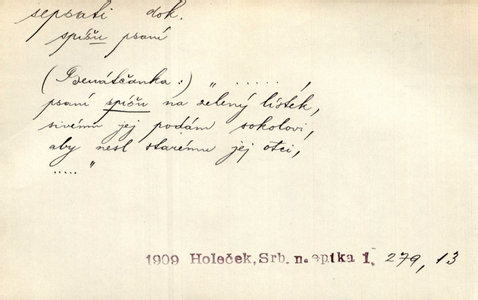 sepsati dok.
spíšu psaní
(Benátčanka:) „ . . . . . . ,
psaní spíšu na zelený lístek,
sivému jej podám sokolovi,
aby nesl starému jej otci,
. . . . . "
1909 Holeček, Srb. n. epika 1. 279, 13